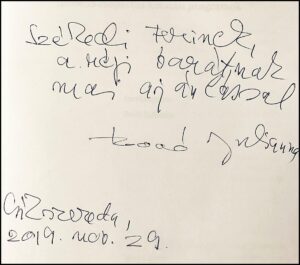 Székedi Ferinek,
a régi barátjnak
mai ajánlással
Koaó Julianna
Csíkszereda,
2019. nov. 29.